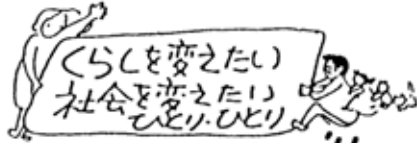 くらしを変えたい
社会を変えたい
ひとり・ひとり